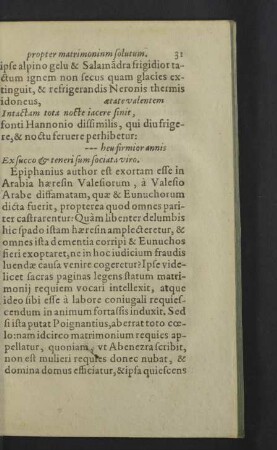 propter matrimonium solutum. 31
ipse alpino gelu & Salamādra frigidior ta-
ctum ignem non secus quam glacies ex-
tinguit, & refrigerandis Neronis thermis
idoneus, ætate valentem
Intactam tota nocte iacere sinit,
fonti Hannonio dissimilis, qui diu frige-
re, & noctu feruere perhibetur:
--- heu firmior annis
Ex succo & teneri sum sociata viro.
Epiphanius author est exortam esse in
Arabia hæresin Valesiorum, à Valesio
Arabe diffamatam, quæ & Eunuchorum
dicta fuerit, propterea quod omnes pari-
ter castrarentur: Quàm libenter delumbis
hic spado istam hæresin amplecteretur, &
omnes ista dementia corripi & Eunuchos
fieri exoptaret, ne in hoc iudicium fraudis
luendæ causa venire cogeretur? Ipse vide-
licet sacras paginas legens statum matri-
monij requiem vocari intellexit, atque
ideo sibi esse à labore coniugali requies-
cendum in animum fortassis induxit. Sed
si ista putat Poignantius, aberrat toto cœ-
lo: nam idcirco matrimonium requies ap-
pellatur, quoniam, vt Abenezra scribit,
non est mulieri requies donec nubat, &
domina domus efficiatur, & ipsa quiescens